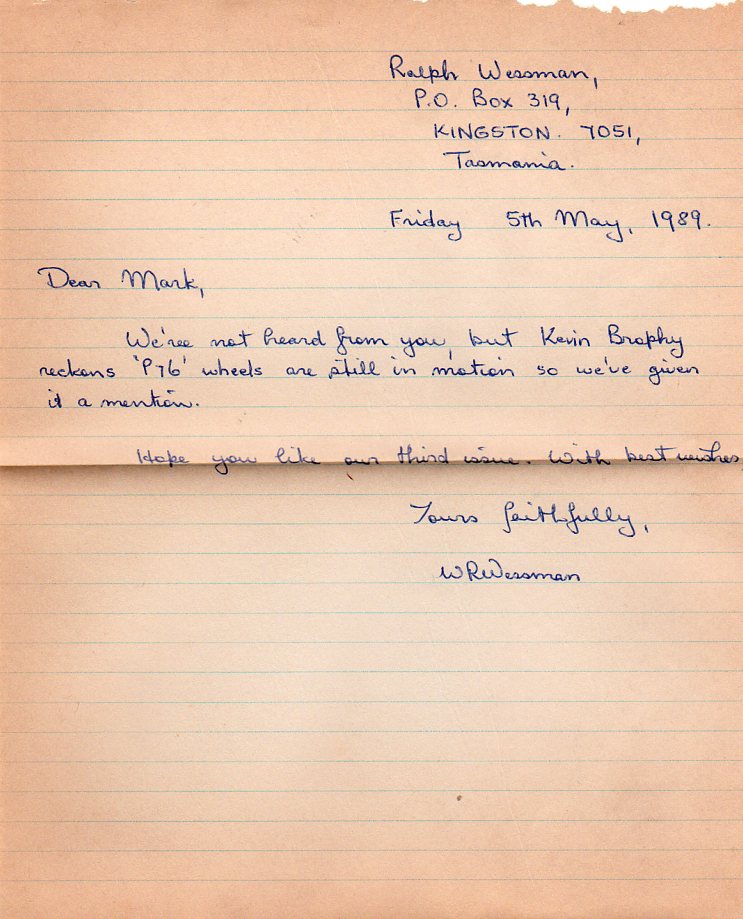 Ralph Wessman,
P.O. Box 319,
KINGSTON. 7051,
Tasmania.
Friday 5th May, 1989.
Dear Mark,
We've not heard from you, but Kevin Brophy
reckons 'P76' wheels are still in motion so we've given
it a mention.
Hope you like our third issue. With best wishes
Yours faithfully,
WRWessman